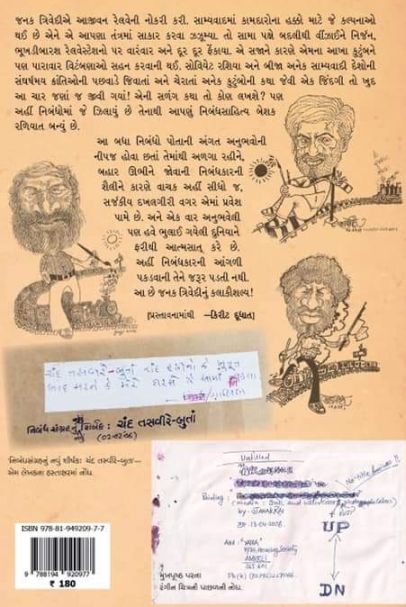 જનક ત્રિવેદીએ આજીવન રેલવેની નોકરી કરી. સામ્યવાદમાં કામદારોના હક્કો માટે જે કલ્પનાઓ
થઈ છે એને એ આપણા તંત્રમાં સાકાર કરવા ઝઝૂમ્યા. તો સામા પક્ષે બદલીથી વીંઝાઈને નિર્જન,
ભૂખડીબારશ રેલવેસ્ટેશનો પર વારંવાર અને દૂર દૂર ફેંકાયા. એ સજાને કારણે એમના આખા કુટુંબને
પણ પારાવાર વિટંબણાઓ સહન કરવાની થઈ. સોવિયેટ રશિયા અને બીજા અનેક સામ્યવાદી દેશોની
સંઘર્ષમય ક્રાંતિઓની પછવાડે જિવાતાં અને ચેરાતાં અનેક કુટુંબોની કથા જેવી એક જિંદગી તો ખુદ
આ ચાર જણાં જ જીવી ગયાં! એની સળંગ કથા તો કોણ લખશે? પણ
અહીં નિબંધોમાં જે ઝિલાયું છે તેનાથી આપણું નિબંધસાહિત્ય બેશક
રળિયાત બન્યું છે.
આ બધા નિબંધો પોતાની અંગત અનુભવોની
નીપજ હોવા છતાં તેમાંથી અળગા રહીને,
બહાર ઊભીને જોવાની નિબંધકારની
શૈલીને કારણે વાચક અહીં સીધો જ,
સર્જકીય દખલગીરી વગર એમાં પ્રવેશ
પામે છે. અને એક વાર અનુભવેલી
પણ હવે ભુલાઈ ગયેલી દુનિયાને
ફરીથી આત્મસાત્ કરે છે.
અહીં નિબંધકારની આંગળી
પકડવાની તેને જરૂર પડતી નથી.
આ છે જનક ત્રિવેદીનું કલાકૌશલ્ય!
(પ્રસ્તાવનામાંથી –કિરીટ દૂધાત)
ચંદ તસવીરે-બુતાં
નિબંધસંગ્રહનું શીર્ષક : ચંદ તસવીરે-બુતાં
નિબંધસંગ્રહનું નવું શીર્ષક: ચંદ તસવીરે-બુતાં–
એમ લેખકના હસ્તાક્ષરમાં નોંધ.
Untitled
UP
DN
ISBN 978-81-949209-7-7
9 788194 920977
₹ 180
મુખપૃષ્ઠ પરના
રંગીન ચિત્રની પાછળની નોંધ.